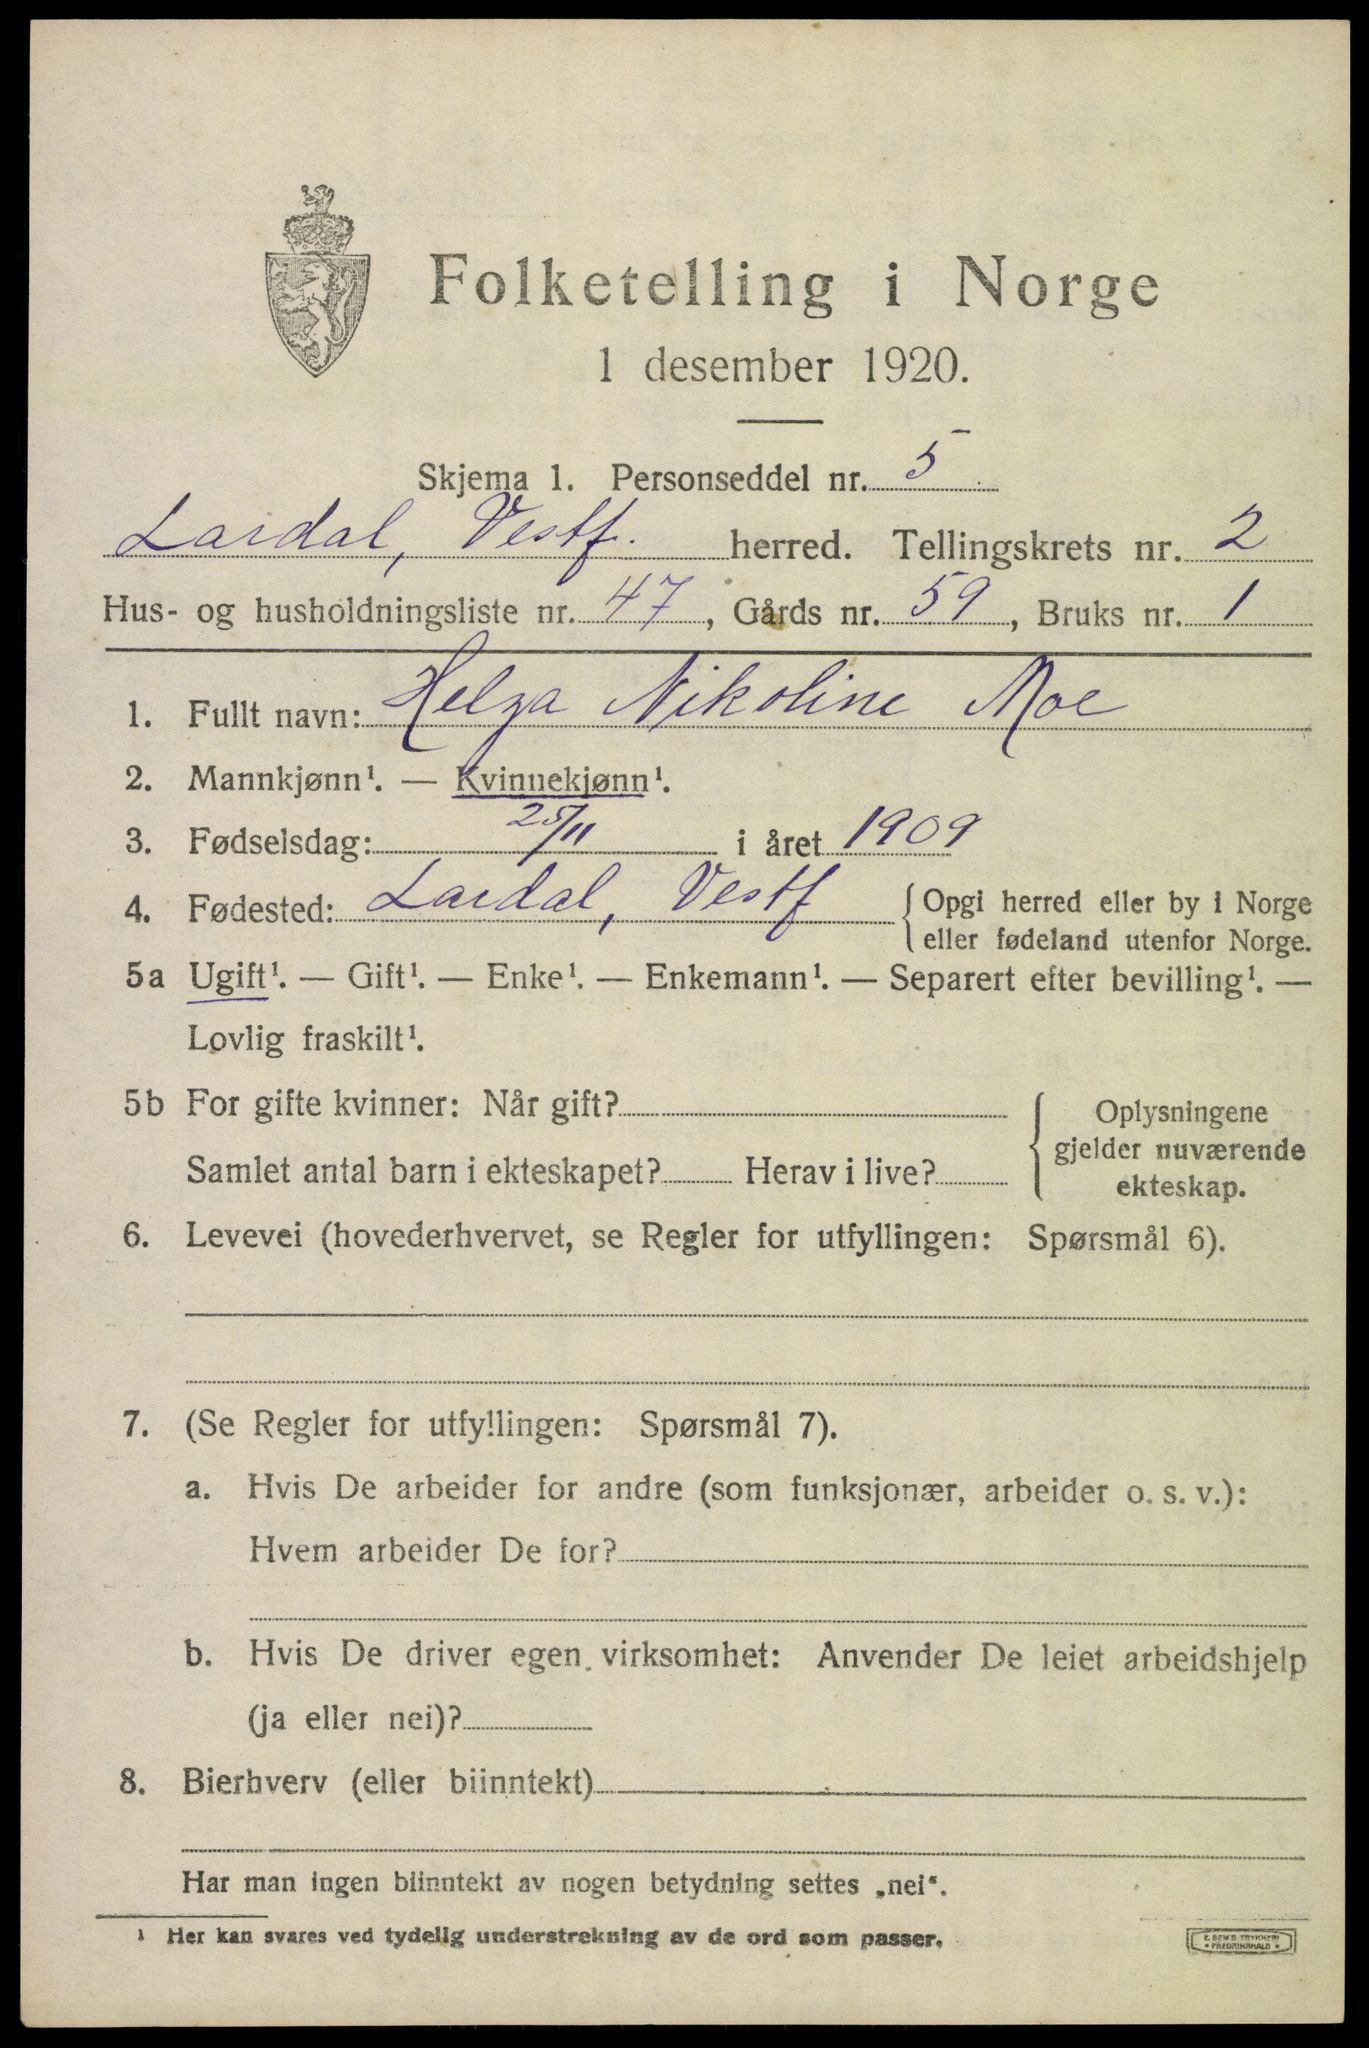 Folketelling i Norge
1 desember 1920.
Skjema 1. Personseddel nr. 5
Lardal, Vestf. herred. Tellingskrets nr. 2
Hus- og husholdningsliste nr. 47, Gårds nr. 59, Bruks nr. 1
1. Fullt navn: Helga Nikoline Moe
2. Mannkjønn¹. — Kvinnekjønn¹.
3. Fødselsdag: 25/11 i året 1909
4. Fødested: Lardal, Vestf { Opgi herred eller by i Norge
eller fødeland utenfor Norge.
5a Ugift¹. — Gift¹. — Enke¹. — Enkemann¹. — Separert efter bevilling¹. —
Lovlig fraskilt¹.
5b For gifte kvinner: Når gift?
Samlet antal barn i ekteskapet? Herav i live?
Oplysningene
gjelder nuværende
ekteskap.
6. Levevei (hovederhvervet, se Regler for utfyllingen: Spørsmål 6).
7. (Se Regler for utfyllingen: Spørsmål 7).
a. Hvis De arbeider for andre (som funksjonær, arbeider o. s. v.):
Hvem arbeider De for?
b. Hvis De driver egen virksomhet: Anvender De leiet arbeidshjelp
(ja eller nei)?
8. Bierhverv (eller biinntekt)
Har man ingen biinntekt av nogen betydning settes „nei“.
¹ Her kan svares ved tydelig understrekning av de ord som passer.
E. SEM'S TRYKKERI
• FREDRIKSHALD •